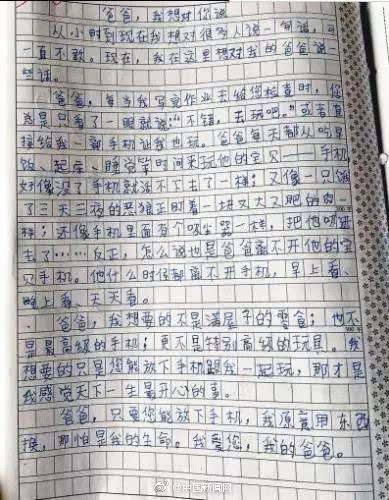 爸爸，我想对你说
从小时到现在我想对很多人说一句话，可
一直不敢。现在，我在这里想对我的爸爸说一
些话。
爸爸，每当我写完作业去给您检查时，您
总是只看了一眼就说：“不错，去玩吧。”或者直
接给我一部手机让我也玩。爸爸每天都从吃早
饭、起床、睡觉等时间来玩他的宝贝——手机，
好像没了手机就活不下去了一样；又像一只饿
了三天三夜的恶狼正盯着一块又大又肥的肉一
样；还像手机里面有个吸尘器一样，把他吸进
去了……反正，怎么说也是爸爸离不开他的宝
贝手机。他什么时候都离不开手机，早上看、
晚上看、天天看。
爸爸，我想要的不是满屋子的零食；也不
是最高级的手机；更不是特别高级的玩具。我
想要的只是您能放下手机跟我一起玩，那才是
我感觉天下一生最开心的事。
爸爸，只要您能放下手机，我愿意用东西
换，那怕是我的生命。我爱您，我的爸爸。
@中国新闻网